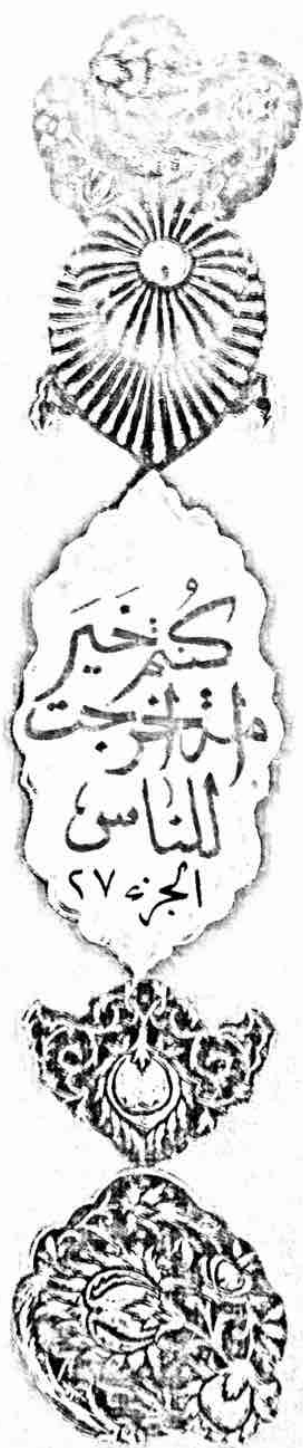 كُنتم خَيَر
امة اخرجت
للناس
الجزء ٢٧